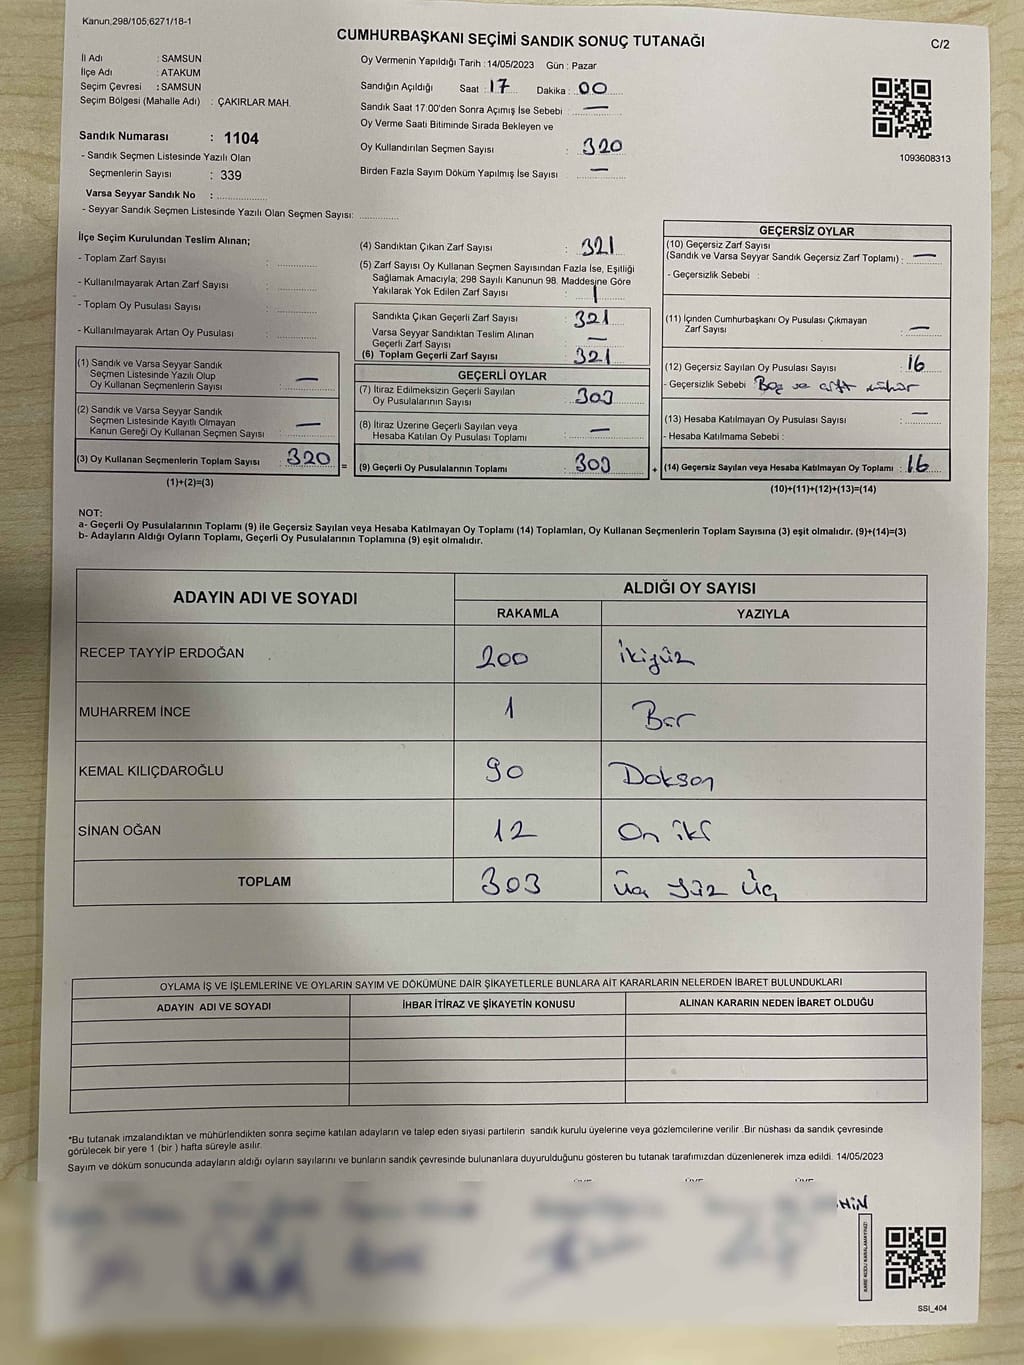 Kanun,298/105,6271/18-1
CUMHURBAŞKANI SEÇİMİ SANDIK SONUÇ TUTANAĞI
C/2
İl Adı : SAMSUN
İlçe Adı : ATAKUM
Seçim Çevresi : SAMSUN
Seçim Bölgesi (Mahalle Adı) : ÇAKIRLAR MAH.
Sandık Numarası : 1104
- Sandık Seçmen Listesinde Yazılı Olan
Seçmenlerin Sayısı : 339
Varsa Seyyar Sandık No :
- Seyyar Sandık Seçmen Listesinde Yazılı Olan Seçmen Sayısı:
Oy Vermenin Yapıldığı Tarih :14/05/2023 Gün : Pazar
Sandığın Açıldığı Saat : 17 Dakika : 00
Sandık Saat 17:00'den Sonra Açımış İse Sebebi : —
Oy Verme Saati Bitiminde Sırada Bekleyen ve
Oy Kullandırılan Seçmen Sayısı : 320
Birden Fazla Sayım Döküm Yapılmış İse Sayısı : —
1093608313
İlçe Seçim Kurulundan Teslim Alınan;
- Toplam Zarf Sayısı :
- Kullanılmayarak Artan Zarf Sayısı :
- Toplam Oy Pusulası Sayısı :
- Kullanılmayarak Artan Oy Pusulası :
(1) Sandık ve Varsa Seyyar Sandık
Seçmen Listesinde Yazılı Olup
Oy Kullanan Seçmenlerin Sayısı : —
(2) Sandık ve Varsa Seyyar Sandık
Seçmen Listesinde Kayıtlı Olmayan
Kanun Gereği Oy Kullanan Seçmen Sayısı : —
(3) Oy Kullanan Seçmenlerin Toplam Sayısı : 320 =
(1)+(2)=(3)
(4) Sandıktan Çıkan Zarf Sayısı : 321
(5) Zarf Sayısı Oy Kullanan Seçmen Sayısından Fazla İse, Eşitliği
Sağlamak Amacıyla; 298 Sayılı Kanunun 98. Maddesine Göre
Yakılarak Yok Edilen Zarf Sayısı : 1
Sandıkta Çıkan Geçerli Zarf Sayısı : 321
Varsa Seyyar Sandıktan Teslim Alınan
Geçerli Zarf Sayısı : —
(6) Toplam Geçerli Zarf Sayısı : 321
GEÇERLİ OYLAR
(7) İtiraz Edilmeksizin Geçerli Sayılan
Oy Pusulalarının Sayısı : 303
(8) İtiraz Üzerine Geçerli Sayılan veya
Hesaba Katılan Oy Pusulası Toplamı : —
(9) Geçerli Oy Pusulalarının Toplamı : 303 +
GEÇERSİZ OYLAR
(10) Geçersiz Zarf Sayısı
(Sandık ve Varsa Seyyar Sandık Geçersiz Zarf Toplamı) : —
- Geçersizlik Sebebi :
(11) İçinden Cumhurbaşkanı Oy Pusulası Çıkmayan
Zarf Sayısı : —
(12) Geçersiz Sayılan Oy Pusulası Sayısı : 16
- Geçersizlik Sebebi : Boş ve çift mühür
(13) Hesaba Katılmayan Oy Pusulası Sayısı : —
- Hesaba Katılmama Sebebi :
(14) Geçersiz Sayılan veya Hesaba Katılmayan Oy Toplamı : 16
(10)+(11)+(12)+(13)=(14)
NOT:
a- Geçerli Oy Pusulalarının Toplamı (9) ile Geçersiz Sayılan veya Hesaba Katılmayan Oy Toplamı (14) Toplamları, Oy Kullanan Seçmenlerin Toplam Sayısına (3) eşit olmalıdır. (9)+(14)=(3)
b- Adayların Aldığı Oyların Toplamı, Geçerli Oy Pusulalarının Toplamına (9) eşit olmalıdır.
ADAYIN ADI VE SOYADI ALDIĞI OY SAYISI
RAKAMLA YAZIYLA
RECEP TAYYİP ERDOĞAN 200 İkiyüz
MUHARREM İNCE 1 Bir
KEMAL KILIÇDAROĞLU 90 Doksan
SİNAN OĞAN 12 On iki
TOPLAM 303 Üç yüz Üç
OYLAMA İŞ VE İŞLEMLERİNE VE OYLARIN SAYIM VE DÖKÜMÜNE DAİR ŞİKAYETLERLE BUNLARA AİT KARARLARIN NELERDEN İBARET BULUNDUKLARI
ADAYIN ADI VE SOYADI İHBAR İTİRAZ VE ŞİKAYETİN KONUSU ALINAN KARARIN NEDEN İBARET OLDUĞU
*Bu tutanak imzalandıktan ve mühürlendikten sonra seçime katılan adayların ve talep eden siyasi partilerin sandık kurulu üyelerine veya gözlemcilerine verilir .Bir nüshası da sandık çevresinde
görülecek bir yere 1 (bir ) hafta süreyle asılır.
Sayım ve döküm sonucunda adayların aldığı oyların sayılarını ve bunların sandık çevresinde bulunanlara duyurulduğunu gösteren bu tutanak tarafımızdan düzenlenerek imza edildi. 14/05/2023
KARE KODU KARALAMAYINIZ!
SSİ_404